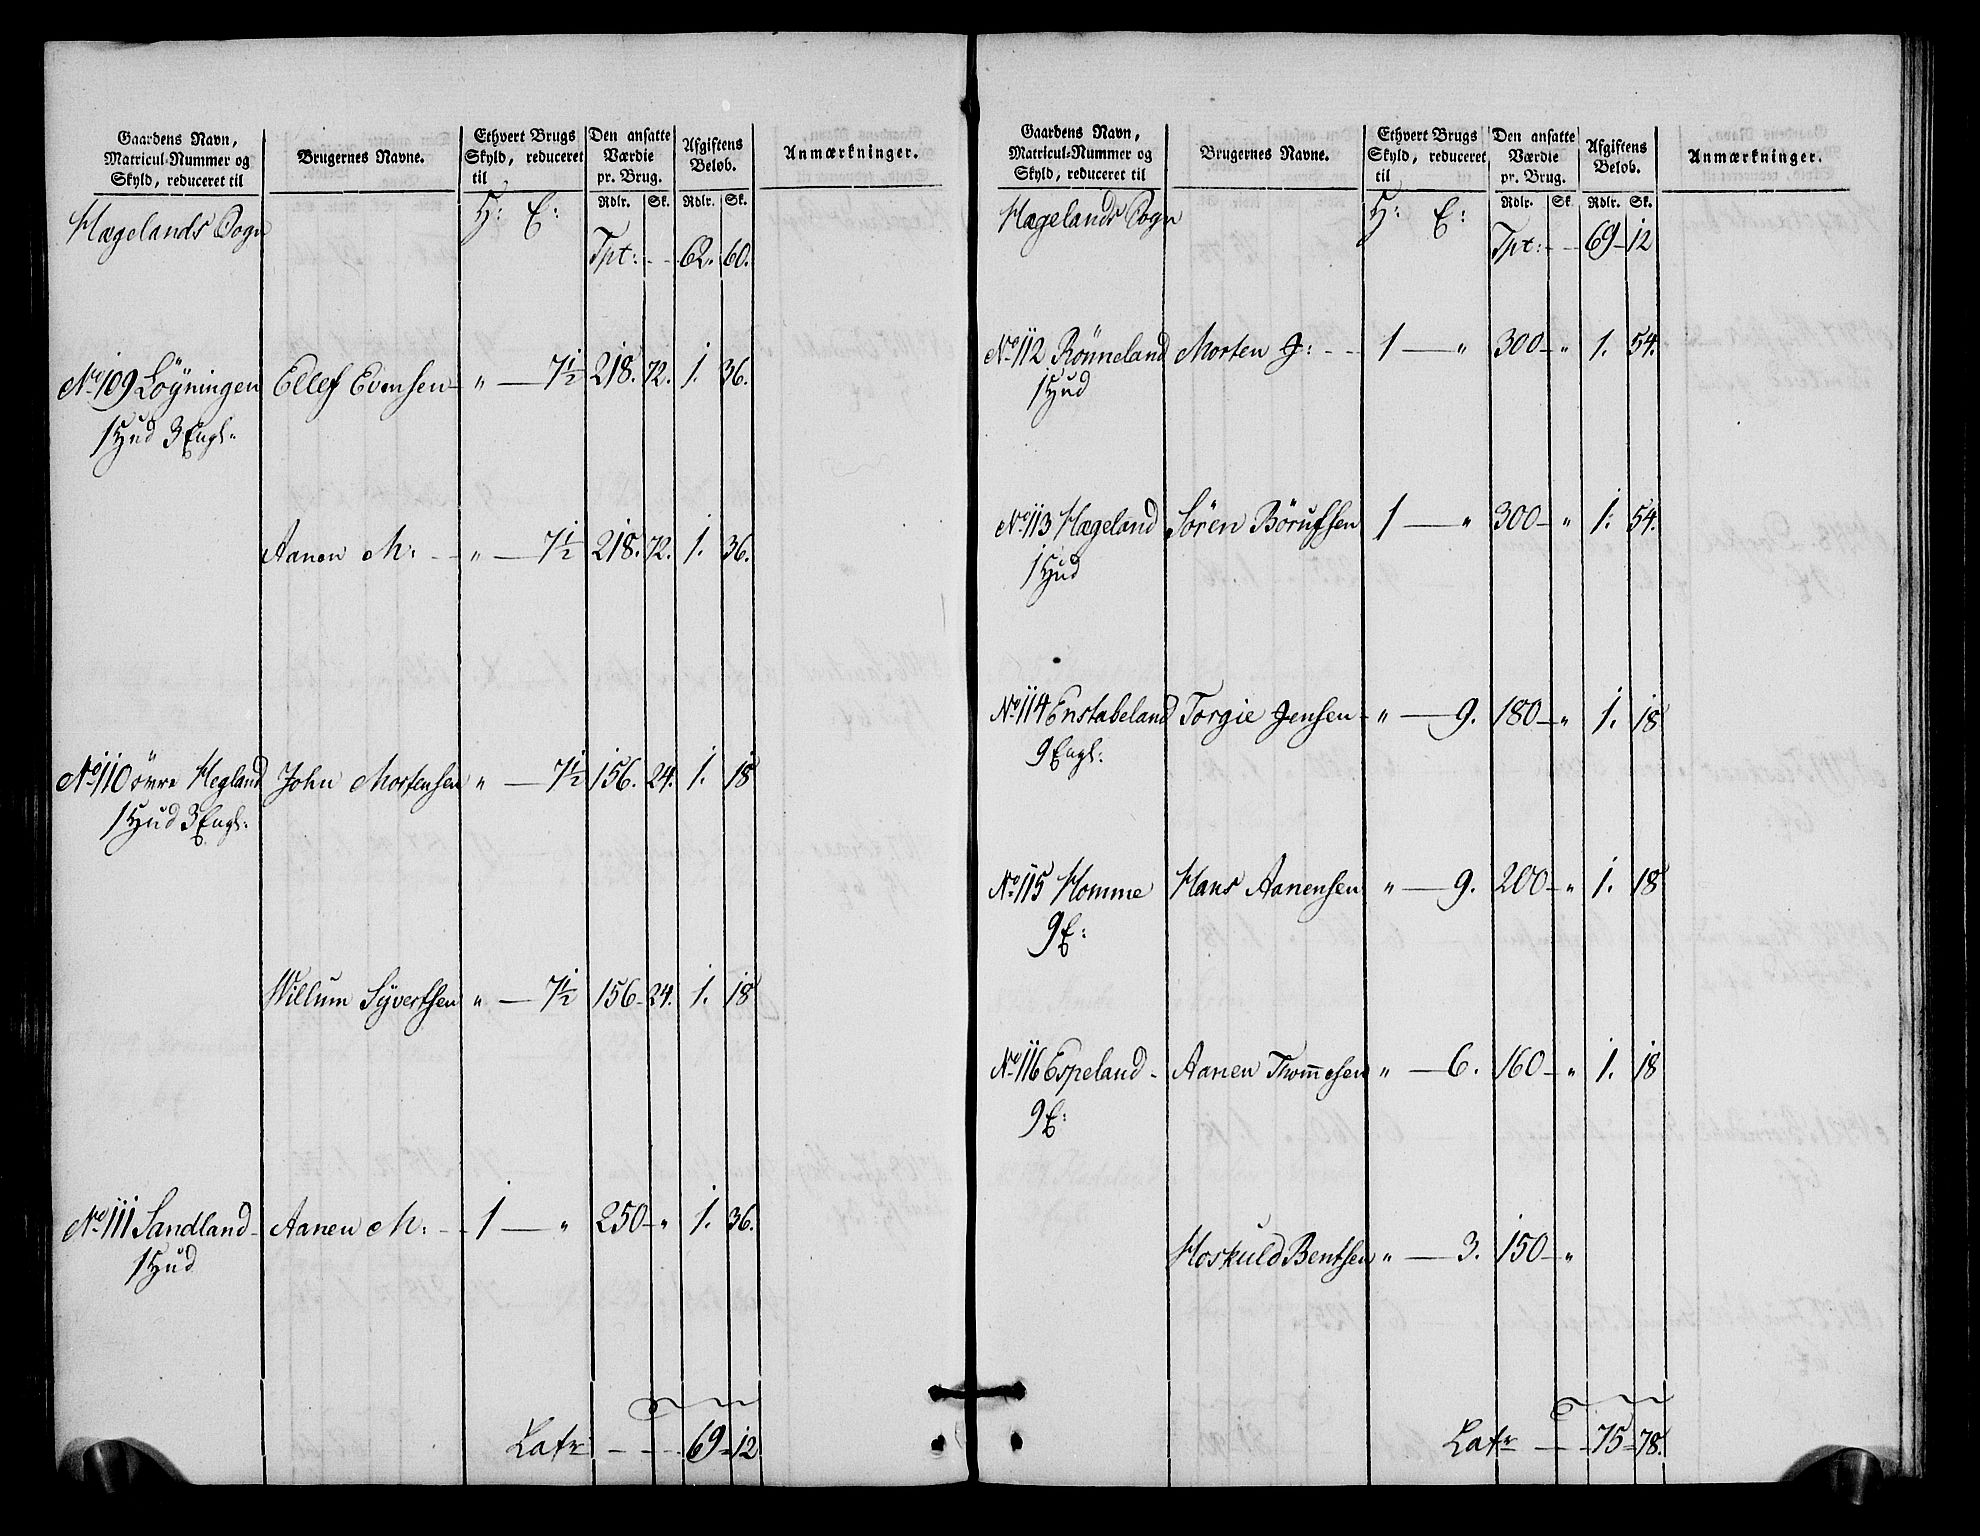 Gaardens Navn, Matricul-Nummer og Skyld, reduceret til | Brugernes Navne. | Ethvert Brugs Skyld, reduceret til | Den ansatte Værdie pr. Brug. | Afgiftens Beløb. | Anmærkninger.
Rdlr. Sk. Rdlr. Sk.
Hægelands Sogn H: E: Tpt: - - 62. 60.
No 109 Löyningen Ellef Evensen - " — 7½ 218. 72. 1. 36.
1 Hud 3 Engl:
Aanen M: - " — 7½ 218. 72. 1. 36.
No 110 övre Hegland John Mortensen " — 7½ 156. 24. 1. 18
1 Hud 3 Engl:
Willum Syvertsen " — 7½ 156. 24. 1. 18
No 111 Sandland - Aanen M: - 1 — " 250 - " 1. 36.
1 Hud
Latr - - - 69 - 12
Gaardens Navn, Matricul-Nummer og Skyld, reduceret til | Brugernes Navne. | Ethvert Brugs Skyld, reduceret til | Den ansatte Værdie pr. Brug. | Afgiftens Beløb. | Anmærkninger.
Rdlr. Sk. Rdlr. Sk.
Hægelands Sogn H: E: Tpt: - - 69 - 12
No 112 Rönneland Morten J: - - 1 — " 300 - " 1. 54.
1 Hud
No 113 Hægeland Sören Börufsen 1 — " 300 - " 1. 54.
1 Hud
No 114 Enstabeland Torgie Jensen - " — 9. 180 - " 1. 18
9 Engl:
No 115 Homme Hans Aanensen " — 9. 200 - " 1. 18
9 E:
No 116 Espeland - Aanen Thommesen " — 6. 160 - " 1. 18
9 E:
Hoskuld Bentsen " — 3. 150 - "
Latr - - 75 - 78.